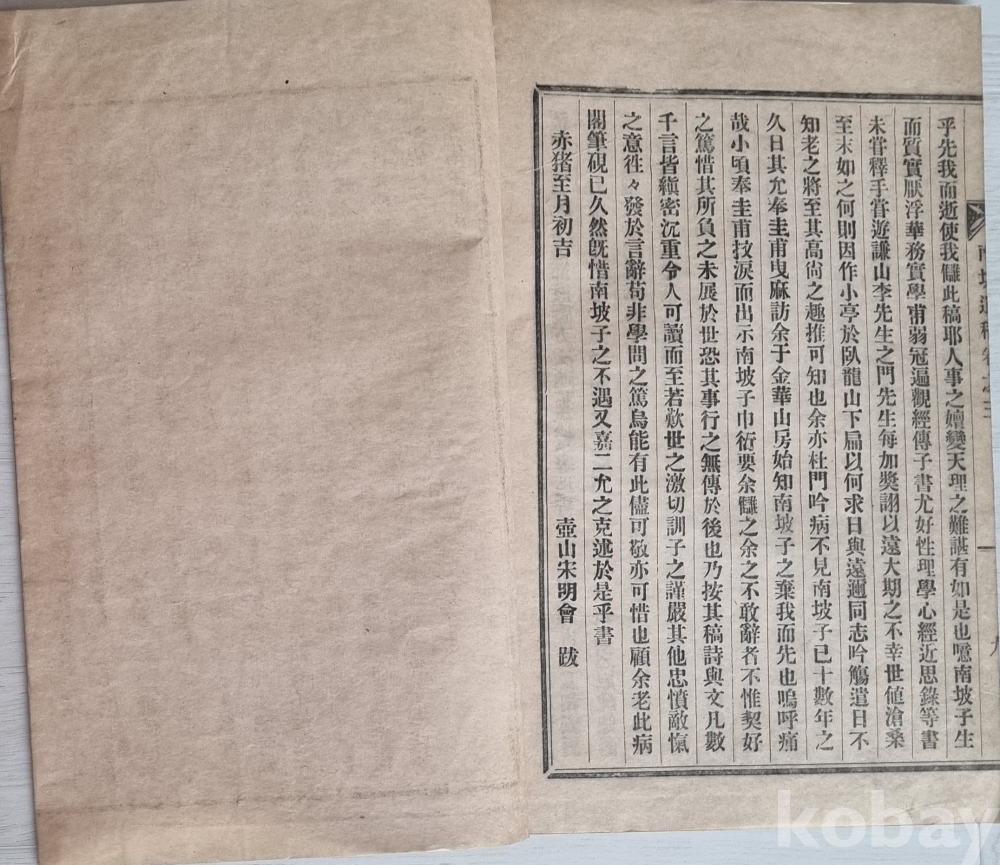 南坡遺稿卷之三
九
乎先我而逝使我讎此稿耶人事之嬗變天理之難諶有如是也噫南坡子生
而質實厭浮華務實學甫弱冠遍觀經傳子書尤好性理學心經近思錄等書
未甞釋手甞遊謙山李先生之門先生每加獎詡以遠大期之不幸世値滄桑
至末如之何則因作小亭於臥龍山下扁以何求日與遠邇同志吟觴遣日不
知老之將至其高尙之趣推可知也余亦杜門吟病不見南坡子已十數年之
久日其允奉圭甫曳麻訪余于金華山房始知南坡子之棄我而先也嗚呼痛
哉小頃奉圭甫抆淚而出示南坡子巾衍要余讎之余之不敢辭者不惟契好
之篤惜其所負之未展於世恐其事行之無傳於後也乃按其稿詩與文凡數
千言皆縝密沉重令人可讀而至若歎世之激切訓子之謹嚴其他忠憤敵愾
之意徃々發於言辭苟非學問之篤烏能有此儘可敬亦可惜也顧余老此病
閣筆硯已久然旣惜南坡子之不遇又嘉二允之克述於是乎書
赤猪至月初吉
壺山宋明會 跋
kobay